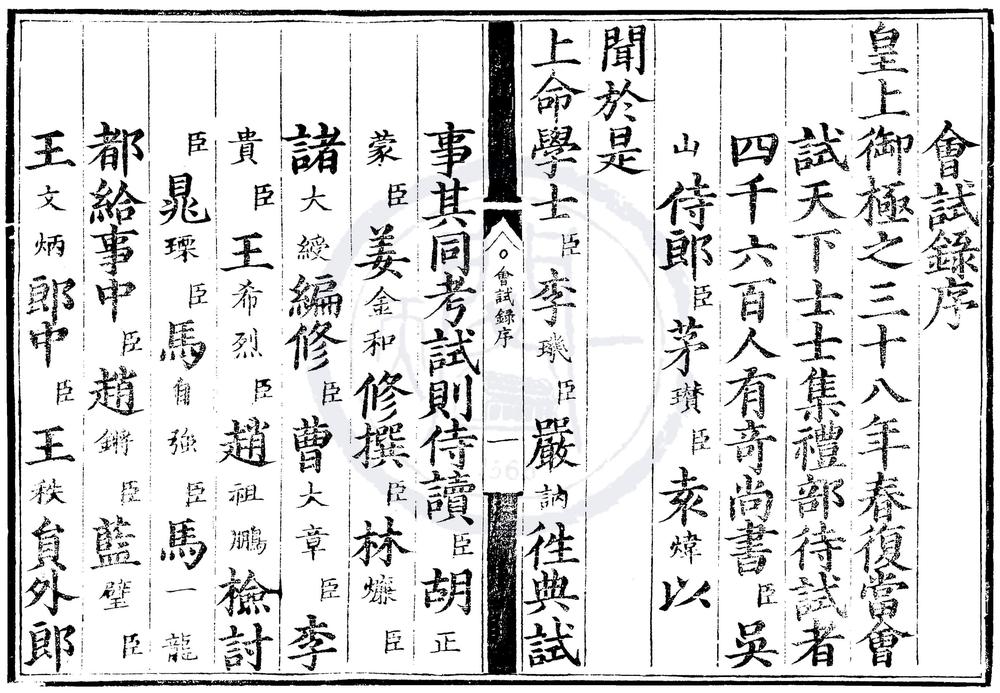 會試錄序
皇上御極之三十八年春復當會
試天下士士集禮部待試者
四千六百人有奇尚書臣吳
山侍郎臣茅瓚臣袁煒以
聞於是
上命學士臣李璣臣嚴訥徃典試
會試錄序
一
事其同考試則侍讀臣胡正
蒙臣姜金和修撰臣林爌臣
諸大綬編修臣曹大章臣李
貴臣王希烈臣趙祖鵬檢討
臣晁瑮臣馬自強臣馬一龍
都給事中臣趙鏘臣藍璧臣
王文炳郎中臣王秩貟外郎